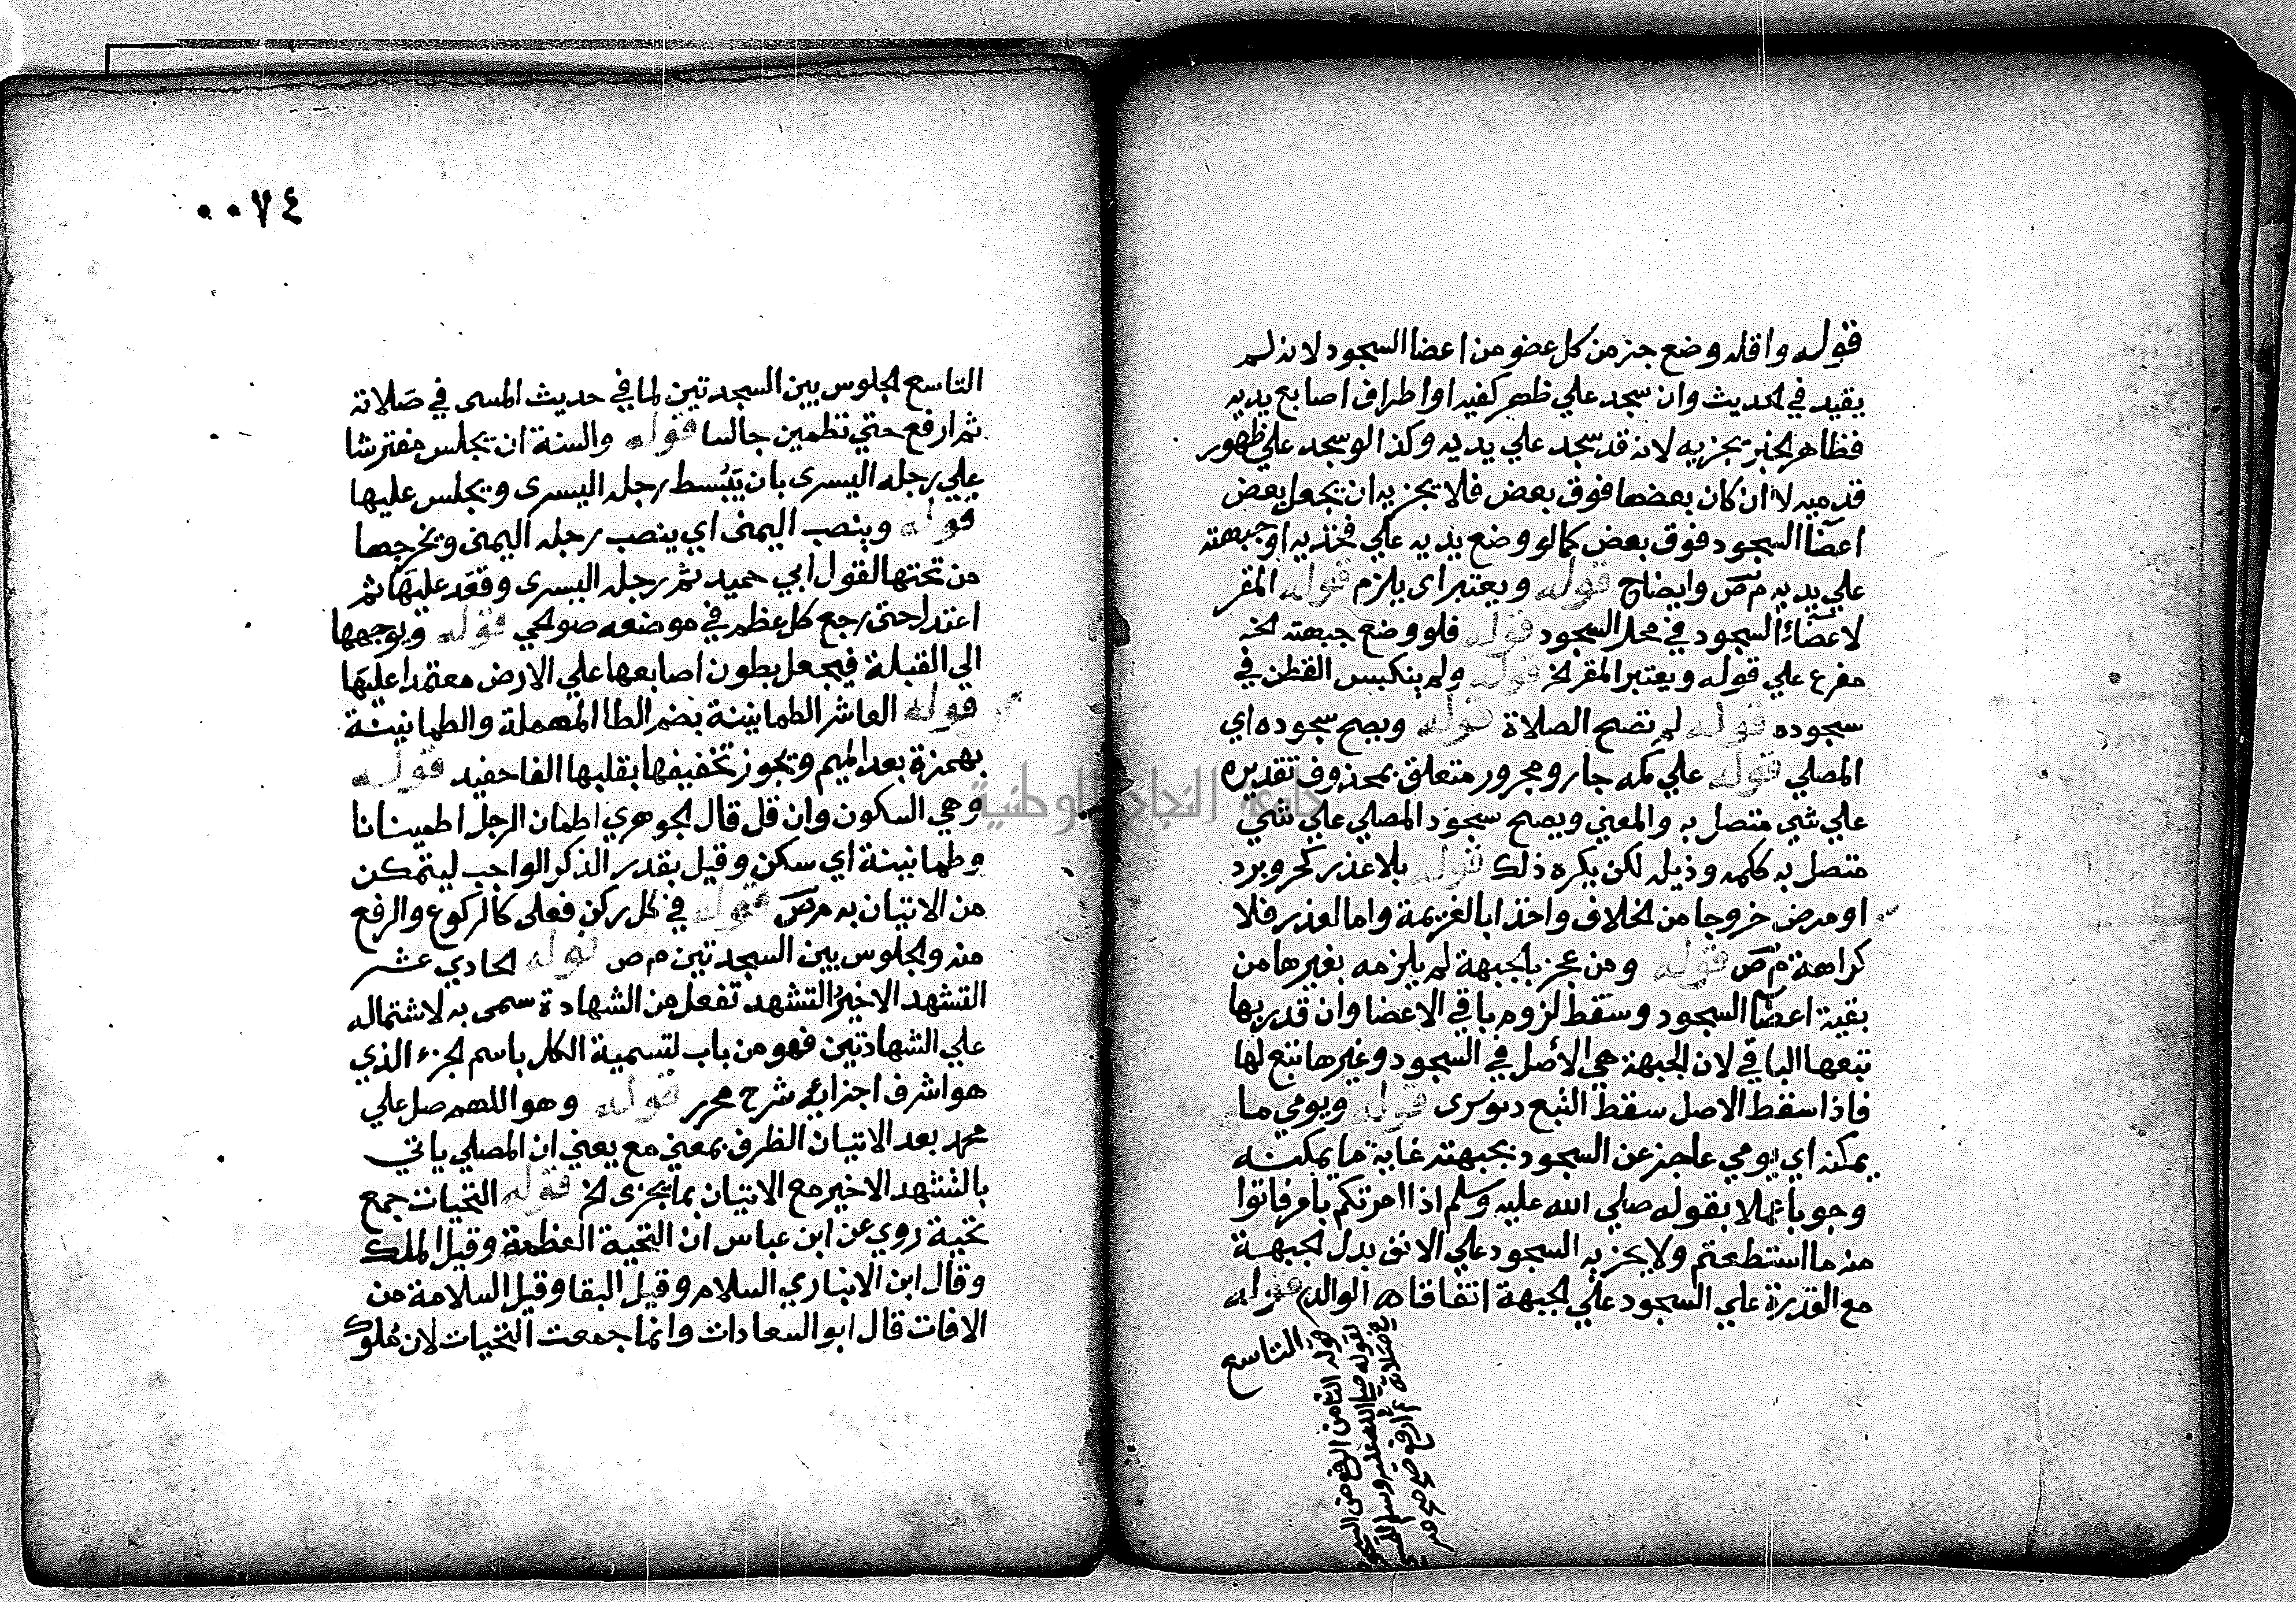 قوله واقله وضع جزء من كل عضو من اعضا السجود لانه لم
يقيد في الحديث وان سجد علي ظهر كفيه او اطراف اصابع يديه
فظاهر الخبر يجزيه لانه قد سجد علي يديه وكذا لو سجد علي ظهور
قدميه لا ان كان بعضها فوق بعض فلا يجزيه ان يجعل بعض
اعضا السجود فوق بعض كما لو وضع يديه علي فخذيه او جبهته
علي يديه م ص وايضاح قوله ويعتبر اي يلزم قوله المقر
لاعضاء السجود في محل السجود قوله فلو وضع جبهته الخ
مفرع علي قوله ويعتبر المقر الخ قوله ولم ينكبس القطن في
سجوده قوله لم تصح الصلاة قوله ويصح سجوده اي
المصلي قوله علي كمه جار ومجرور متعلق بمحذوف تقديره
علي شي متصل به والمعني ويصح سجود المصلي علي شي
متصل به ككمه وذيله لكن يكره ذلك قوله بلا عذر كحر وبرد
او مرض خروجا من الخلاف واخذا بالعزيمة واما لعذر فلا
كراهة م ص قوله ومن عجز بالجبهة لم يلزمه بغيرها من
بقية اعضا السجود وسقط لزوم باقي الاعضا وان قدر بها
تبعها الباقي لان الجبهة هي الأصل في السجود وغيرها تبع لها
فاذا سقط الاصل سقط التبع قوله ويومي ما
يمكنه اي يومي عاجز عن السجود بجبهته غاية ما يمكنه
وجوبا عملا بقوله صلي الله عليه وسلم اذا امرتكم بأمر فاتوا
منه ما استطعتم ولا يجزيه السجود علي الانف بدل الجبهة
مع القدرة علي السجود علي الجبهة اتفاقا اه الوالد قوله
التاسع
قوله الثامن الرفع من السجود
لقوله صلي الله عليه وسلم للمسي
في صلاته ثم ارفع
٠٠٧٤
التاسع الجلوس بين السجدتين لما في حديث المسي في صلاته
ثم ارفع حتي تطمين جالسا قوله والسنة ان يجلس مفترشا
علي رجله اليسرى بان يبسط رجله اليسرى ويجلس عليها
قوله وينصب اليمنى اي ينصب رجله اليمنى ويخرجها
من تحتها لقول ابي حميد ثم رجله اليسرى وقعد عليها ثم
اعتدل حتى رجع كل عظم في موضعه صولحي قوله ويوجهها
الي القبلة فيجعل بطون اصابعها علي الارض معتمدا عليها
قوله العاشر الطمانينة بضم الطا المهملة والطمانينة
بهمزة بعد الميم ويجوز تخفيفها بقلبها الفا حفيد قوله
وهي السكون وان قل قال الجوهري اطمان الرجل اطمينانا
وطمانينة اي سكن وقيل بقدر الذكر الواجب ليتمكن
من الاتيان به م ص قوله في كل ركن فعلى كالركوع والرفع
منه والجلوس بين السجدتين م ص قوله الحادي عشر
التشهد الاخير التشهد تفعل من الشهادة سمى به لاشتماله
علي الشهادتين فهو من باب تسمية الكل باسم الجزء الذي
هو اشرف اجزائه شرح محرر قوله وهو اللهم صل علي
محمد بعد الاتيان الظرف بمعني مع يعني ان المصلي ياتي
بالتشهد الاخير مع الاتيان بما يجزى الخ قوله التحيات جمع
تحية روي عن ابن عباس ان التحية العظمة وقيل الملك
وقال ابن الانباري السلام وقيل البقا وقيل السلامة من
الافات قال ابو السعادات وانما جمعت التحيات لان ملوك